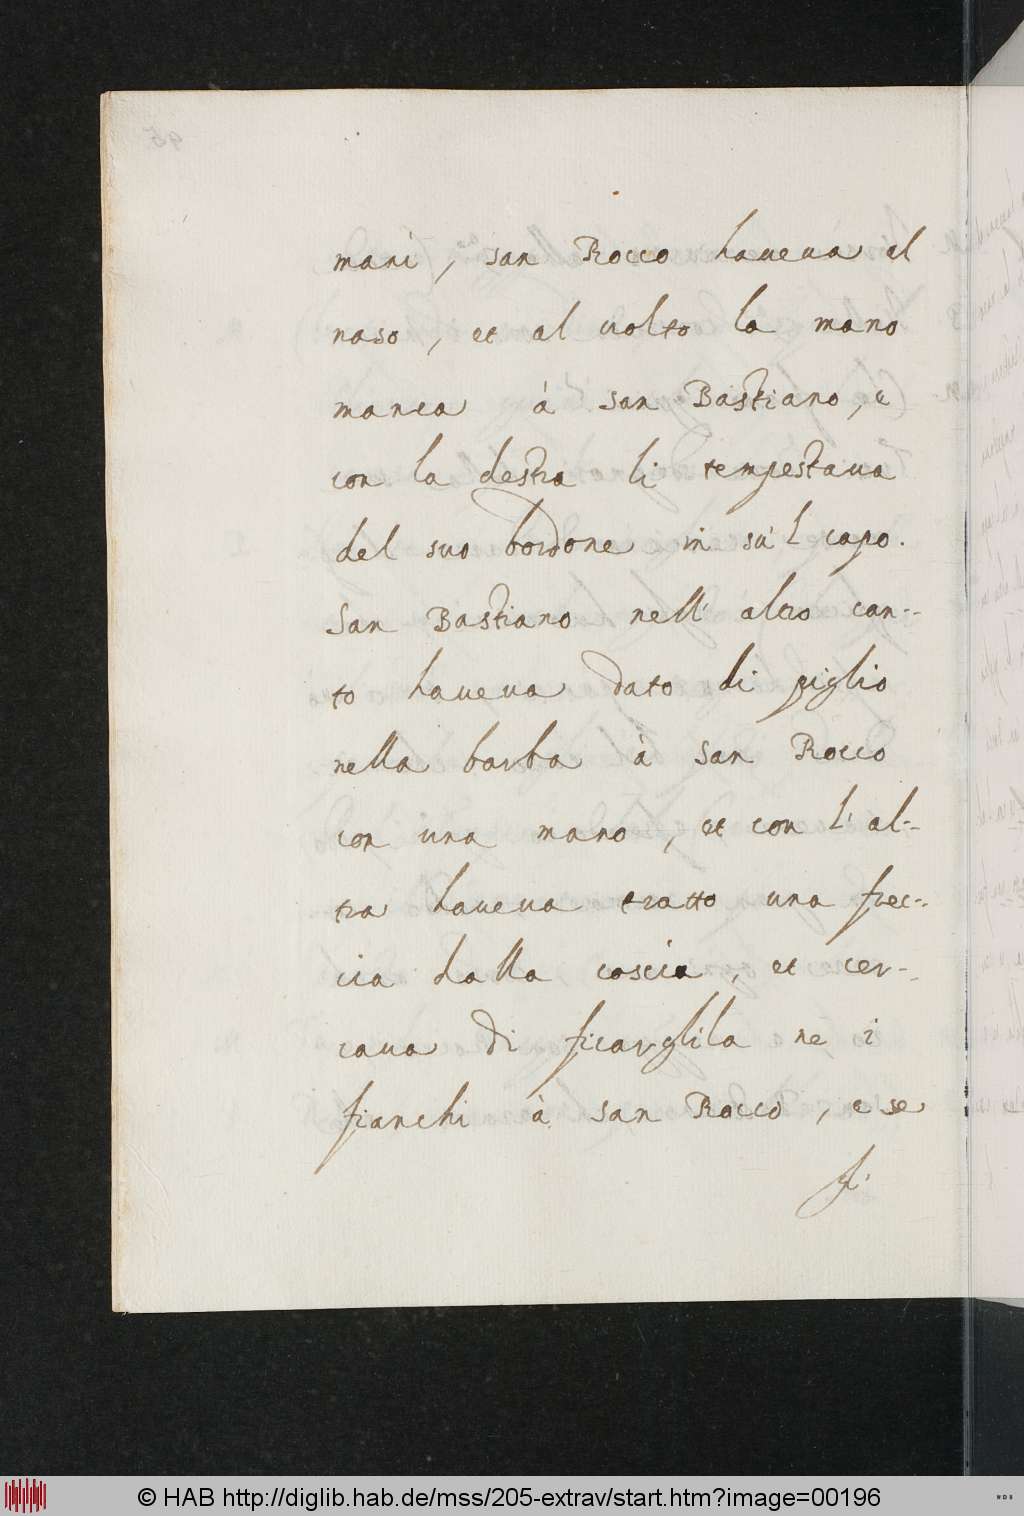 mani, san Rocco haueua al
naso, et al uolto la mano
manca à san Bastiano, e
con la destra li tempestaua
del suo bordone in su'l capo.
San Bastiano nell' altro can-
to haueua dato di piglio
nella barba à san Rocco
con una mano, et con l' al-
tra haueua tratto una frec-
cia dalla coscia, et cer-
caua di ficarglila ne i
fianchi à san Rocco, e se
© HAB http://diglib.hab.de/mss/205-extrav/start.htm?image=00196